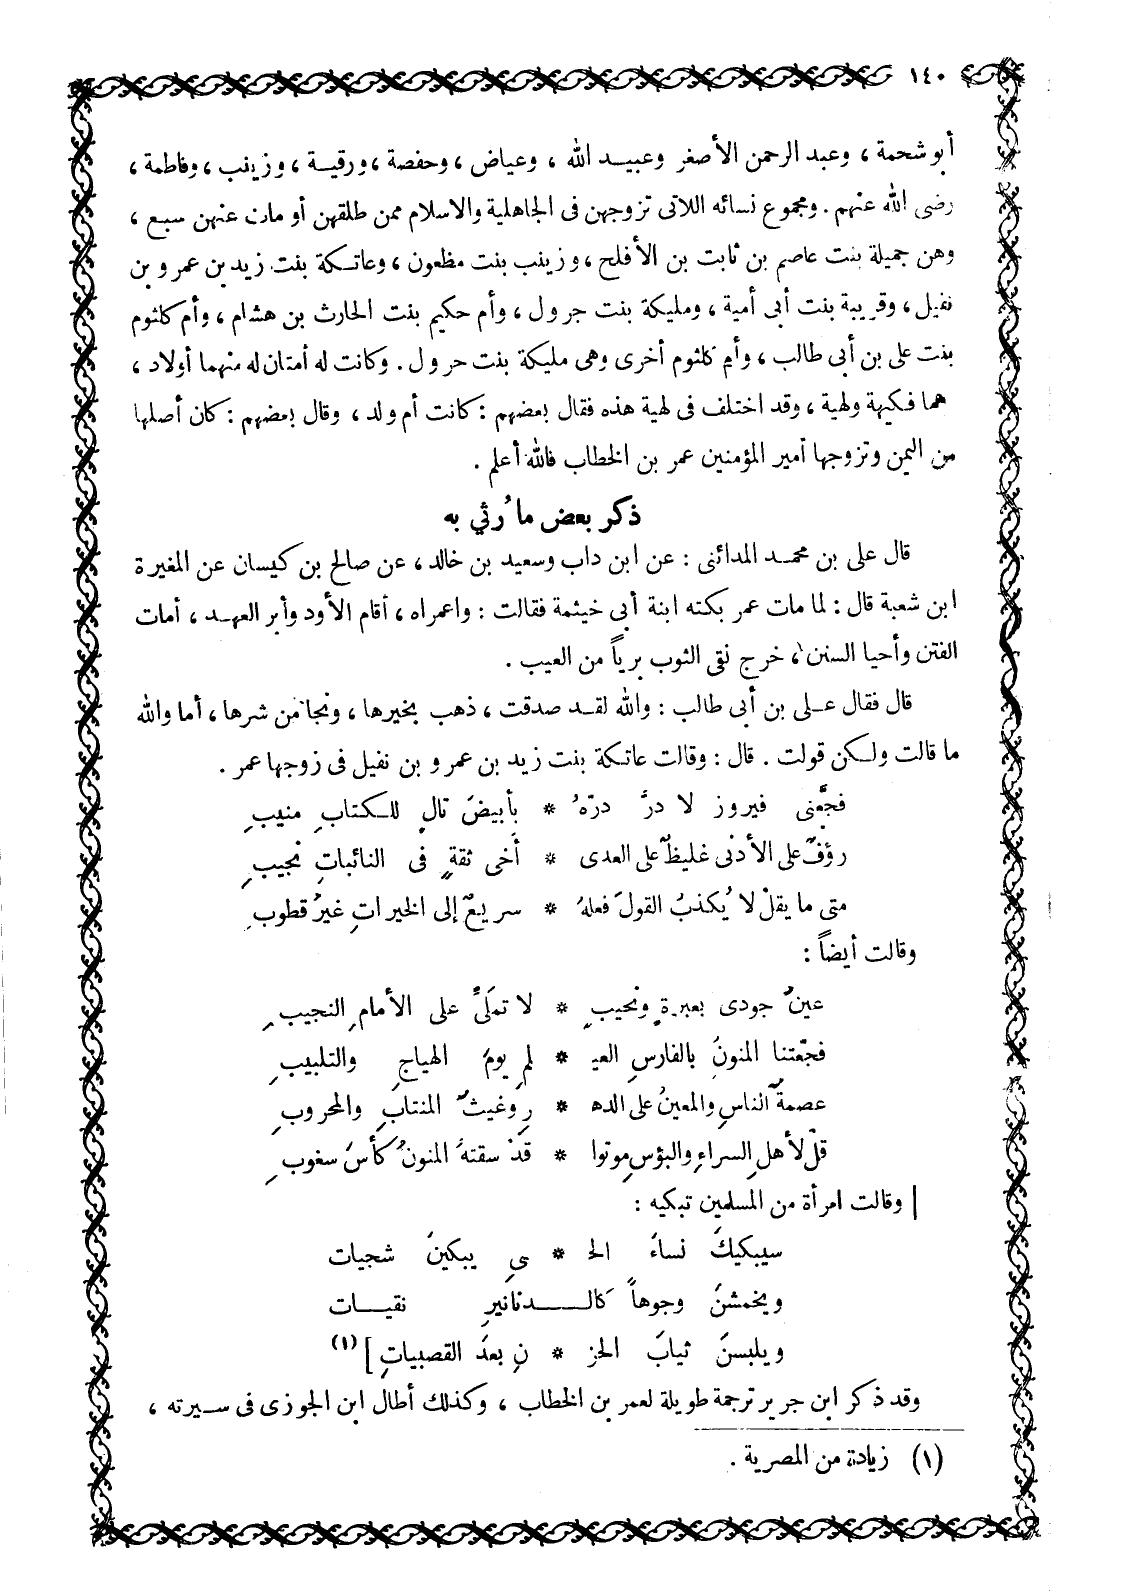 ١٤٠
أبو شحمة ، وعبد الرحمن الأصغر وعبيد الله ، وعياض ، وحفصة ، ورقية ، وزينب ، وفاطمة ،
رضى الله عنهم . ومجموع نسائه اللاتى تزوجهن فى الجاهلية والاسلام ممن طلقهن أو مات عنهن سبع ،
وهن جميلة بنت عاصم بن ثابت بن الأفلح ، وزينب بنت مظعون ، وعاتكة بنت زيد بن عمرو بن
نفيل ، وقريبة بنت أبى أمية ، ومليكة بنت جرول ، وأم حكيم بنت الحارث بن هشام ، وأم كلثوم
بنت على بن أبى طالب ، وأم كلثوم أخرى وهى مليكة بنت حرول . وكانت له أمتان له منهما أولاد ،
هما فكيهة ولهية ، وقد اختلف فى لهية هذه فقال بعضهم : كانت أم ولد ، وقال بعضهم : كان أصلها
من اليمن وتزوجها أمير المؤمنين عمر بن الخطاب فالله أعلم .
ذكر بعض ما رُثي به
قال على بن محمد المدائنى : عن ابن داب وسعيد بن خالد ، عن صالح بن كيسان عن المغيرة
ابن شعبة قال : لما مات عمر بكته ابنة أبى خيثمة فقالت : واعمراه ، أقام الأود وأبر العهد ، أمات
الفتن وأحيا السنن ، خرج نقى الثوب برياً من العيب .
قال فقال على بن أبى طالب : والله لقد صدقت ، ذهب بخيرها ، ونجا من شرها ، أما والله
ما قالت ولكن قولت . قال : وقالت عاتكة بنت زيد بن عمرو بن نفيل فى زوجها عمر .
فجّعنى فيروز لا درَّ درّهُ * بأبيضَ تالٍ للكتابِ منيبِ
رؤفٌ على الأدنى غليظٌ على العدى * أخى ثقةٍ فى النائباتِ نجيبِ
متى ما يقلْ لا يُكذبُ القولَ فعلهُ * سريعٌ إلى الخيراتِ غيرُ قطوبِ
وقالت أيضاً :
عينُ جودى بعبرةٍ ونحيبِ * لا تملّى على الأمامِ النجيبِ
فجّعتنا المنونُ بالفارسِ العيـ * لمِ يومَ الهياجِ والتلبيبِ
عصمةُ الناسِ والمعينُ على الدهـ * رِ وغيثُ المنتابِ والمحروبِ
قلْ لأهلِ السراءِ والبؤسِ موتوا * قدْ سقتهُ المنونُ كأسَ سغوبِ
[ وقالت امرأة من المسلمين تبكيه :
سيبكيكَ نساءُ الحـ * ىِ يبكينَ شجيات
ويخمشنَ وجوهاً كالدنانيرِ نقيات
ويلبسنَ ثيابَ الحز * نِ بعدَ القصبياتِ ] (١)
وقد ذكر ابن جرير ترجمة طويلة لعمر بن الخطاب ، وكذلك أطال ابن الجوزى فى سيرته ،
(١) زيادة من المصرية .